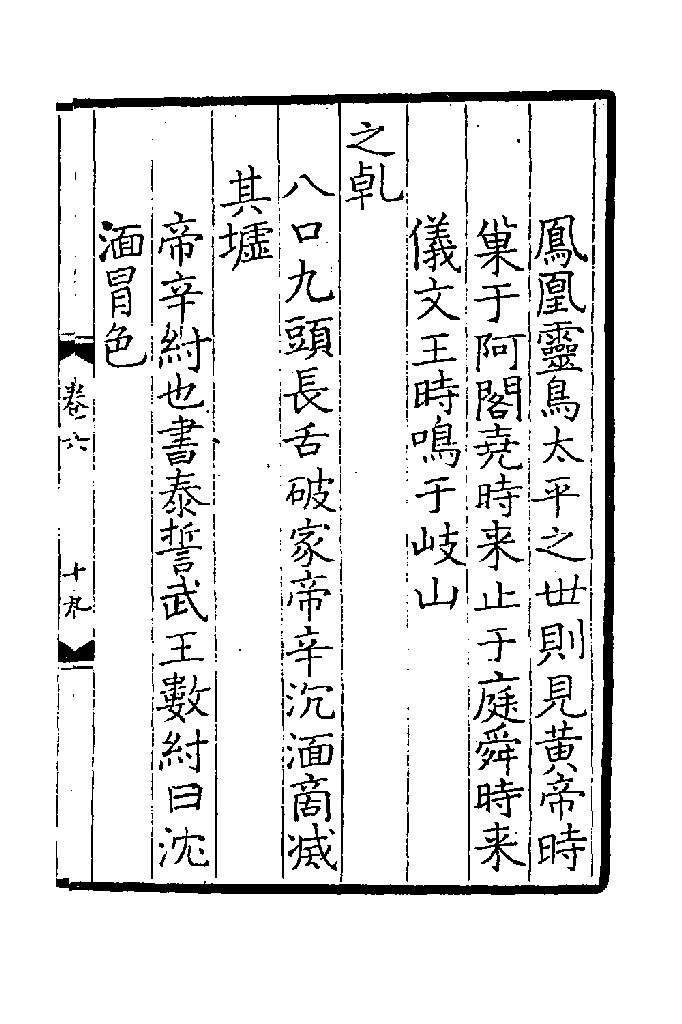 鳳凰靈鳥太平之世則見黃帝時
巢于阿閣堯時来止于庭舜時来
儀文王時鳴于岐山
之乹
八口九頭長舌破家帝辛沉湎商滅
其墟
帝辛紂也書泰誓武王數紂曰沈
湎冒色
卷六
十九